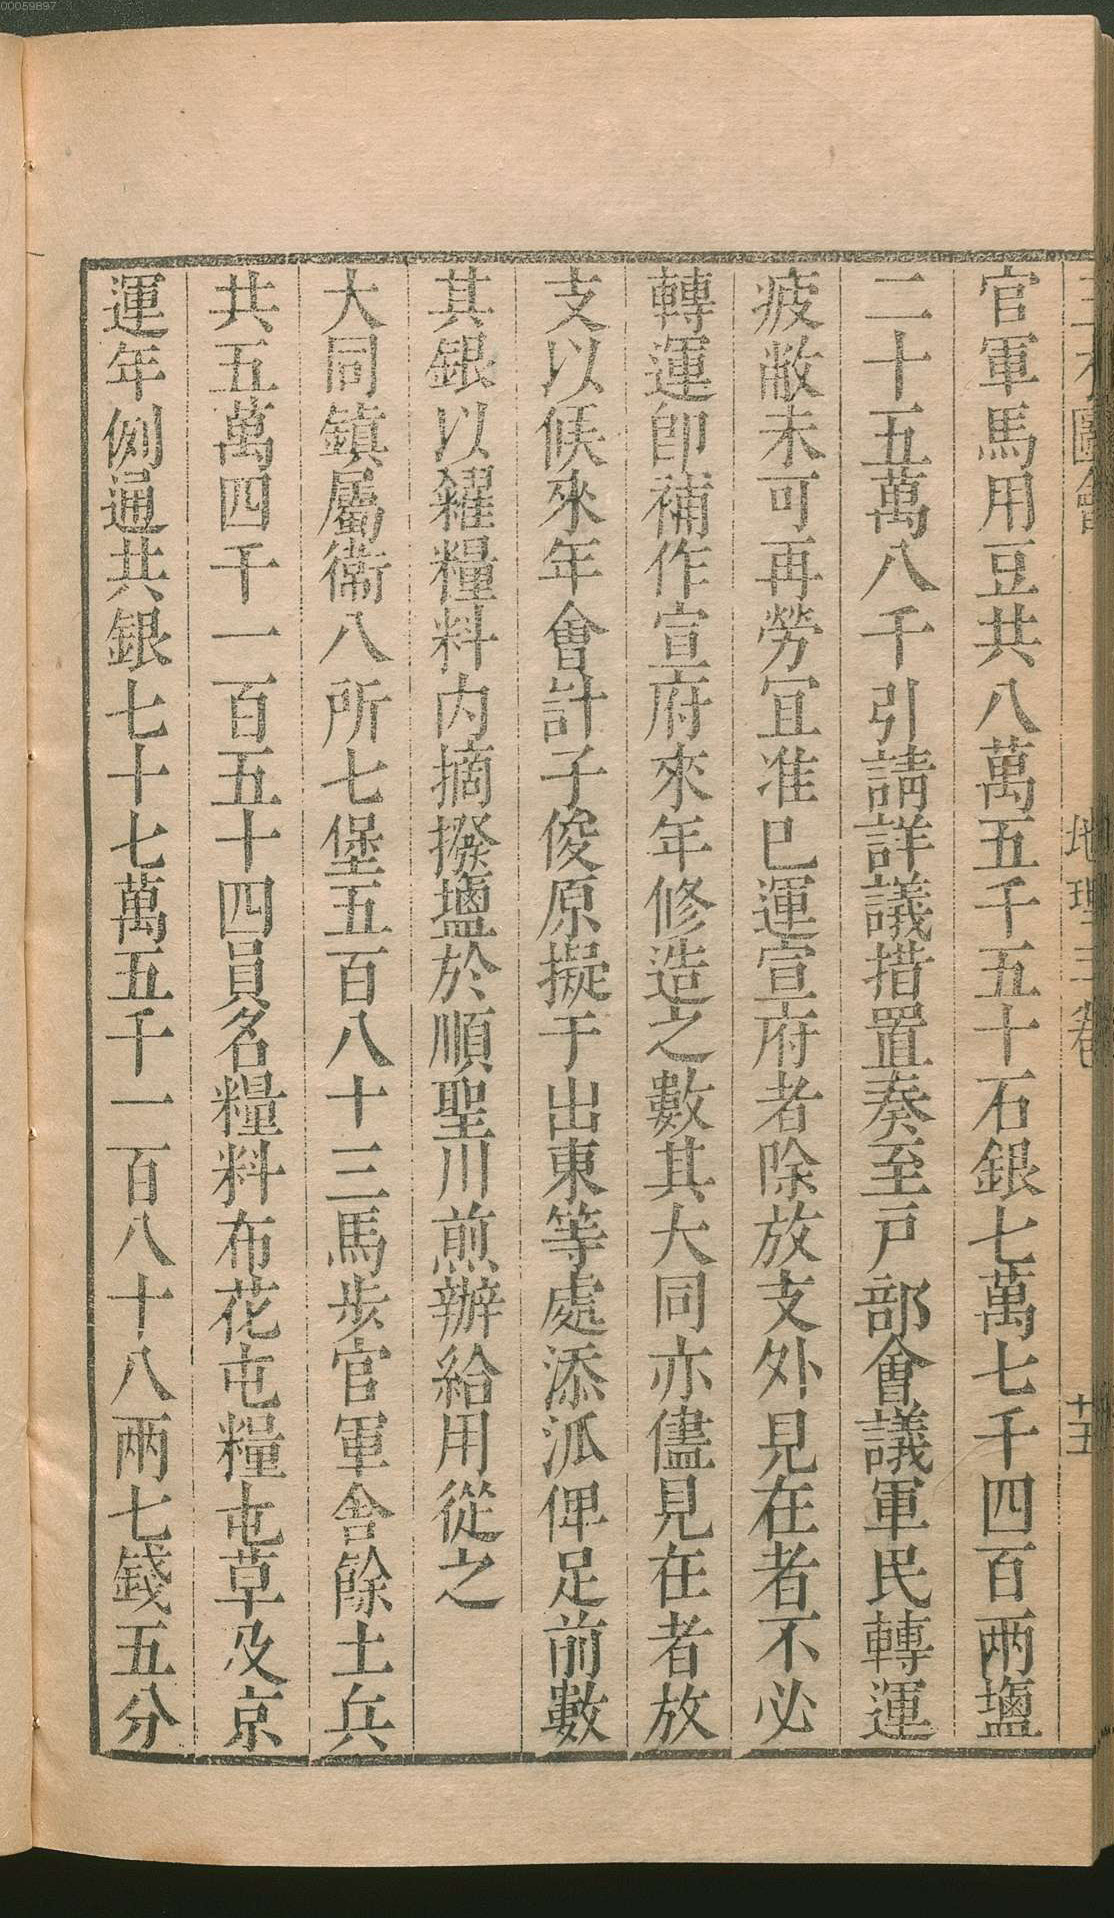 00059897
圖會 地理三卷 十五
官軍馬用豆共八萬五千五十石銀七萬七千四百兩塩
二十五萬八千引請詳議措置奏至戸部會議軍民轉運
疲敝未可再勞宜准已運宣府者除放支外見在者不必
轉運卽補作宣府來年修造之數其大同亦儘見在者放
支以候來年會計子俊原擬于出東等處添派俾足前數
其銀以糴糧料内摘撥塩於順聖川煎辦給用從之
大同鎮屬衞八所七堡五百八十三馬步官軍舎餘土兵
共五萬四千一百五十四員名糧料布花屯糧屯草及京
運年例通共銀七十七萬五千一百八十八兩七錢五分